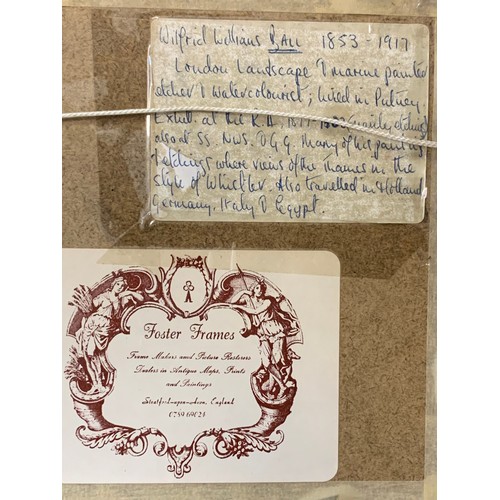 Wilfrid Williams BALL 1853-1917
London Landscape & marine painter
etcher & watercolourist; lived in Putney.
Exhib. at the R.A., 1877- mainly etchings
also at SS. NWS. GG. Many of his paintings
& etchings where views of the Thames in the
style of Whistler. Also travelled in Holland
Germany, Italy & Egypt.
Foster Frames
Frame Makers and Picture Restorers
Dealers in Antique Maps, Prints
and Paintings
Stratford-upon-Avon, England
0789 69024